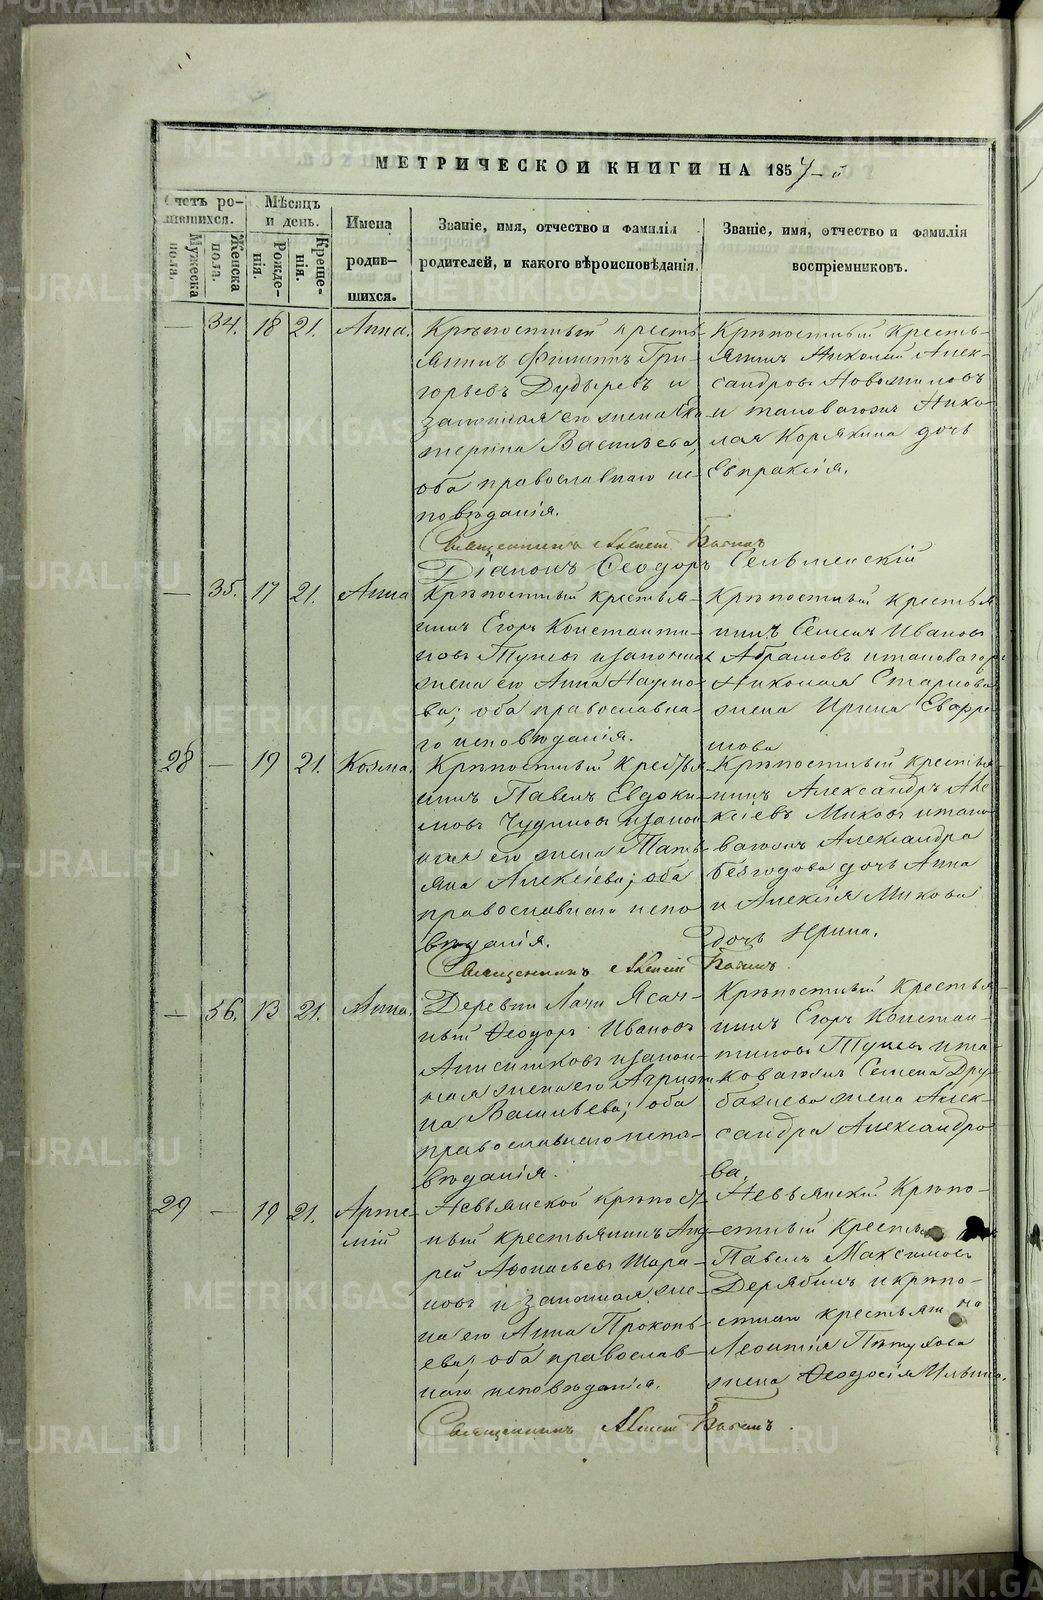 МЕТРИЧЕСКОЙ КНИГИ НА 1857-й
Счетъ ро-
дившихся.
Мужеска
пола.
Женска
пола.
Мѣсяцъ
и день.
Рожде-
нія.
Креще-
нія.
Имена
родив-
шихся.
Званіе, имя, отчество и фамилія
родителей, и какого вѣроисповѣданія.
Званіе, имя, отчество и фамилія
воспріемниковъ.
— 34. 18 21. Анна.
Крѣпостный кресть-
янинъ Филиппъ Гри-
горьевъ Дудыревъ и
законная его жена Ека
терина Васильева,
оба православнаго ис-
повѣданія.
Крѣпостный кресть-
янинъ Николай Алек-
сандровъ Новожиловъ
и таковагожъ Нико-
лая Корякина дочь
Евпраксія.
Священникъ Алексій
Діаконъ Ѳеодоръ
— 35. 17 21. Анна
Крѣпостный крестья-
нинъ Егоръ Константи-
новъ и законная
жена его Анна Наумо-
ва; оба православна-
го исповѣданія.
Крѣпостный крестья
нинъ Семенъ Ивановъ
Абрамовъ и таковагожъ
Николая Старкова
жена Ирина
28 — 19 21. Козма.
Крѣпостный крестья-
нинъ Павелъ Евдоки-
мовъ Чудиновъ и закон
ная его жена Тать-
яна Алексіева; оба
православнаго испо
вѣданія.
Крѣпостный крестья-
нинъ Александръ Але
ксіевъ Миковъ и тако
вагожъ Александра
Безгодова дочь Анна
и Алексія Микова
дочь Ирина.
Священникъ Алексій
— 36. 13 21. Анна.
Деревни Лачи Ясач-
ный Ѳеодоръ Ивановъ
и закон-
ная жена его Агрипи
на Васильева; оба
православнаго испо-
вѣданія.
Крѣпостный крестья-
нинъ Егоръ Констан-
тиновъ и та-
коваго жъ Семена Дру-
жена Алек-
сандра Александро
ва.
29 — 19 21. Арте-
мій
Невьянской крѣпост-
ный крестьянинъ Анд-
рей Аѳонасьевъ Шара-
повъ и законная же-
на его Анна Прокопь-
ева; оба православ-
наго исповѣданія.
Невьянскій Крѣпо-
стный
Павелъ Максимовъ
Дерябинъ и крѣпо-
стнаго крестьянина
Леонтія Пѣтухова
жена Ѳеодосія Ильина.
Священникъ Алексій
METRIKI.GASO-URAL.RU